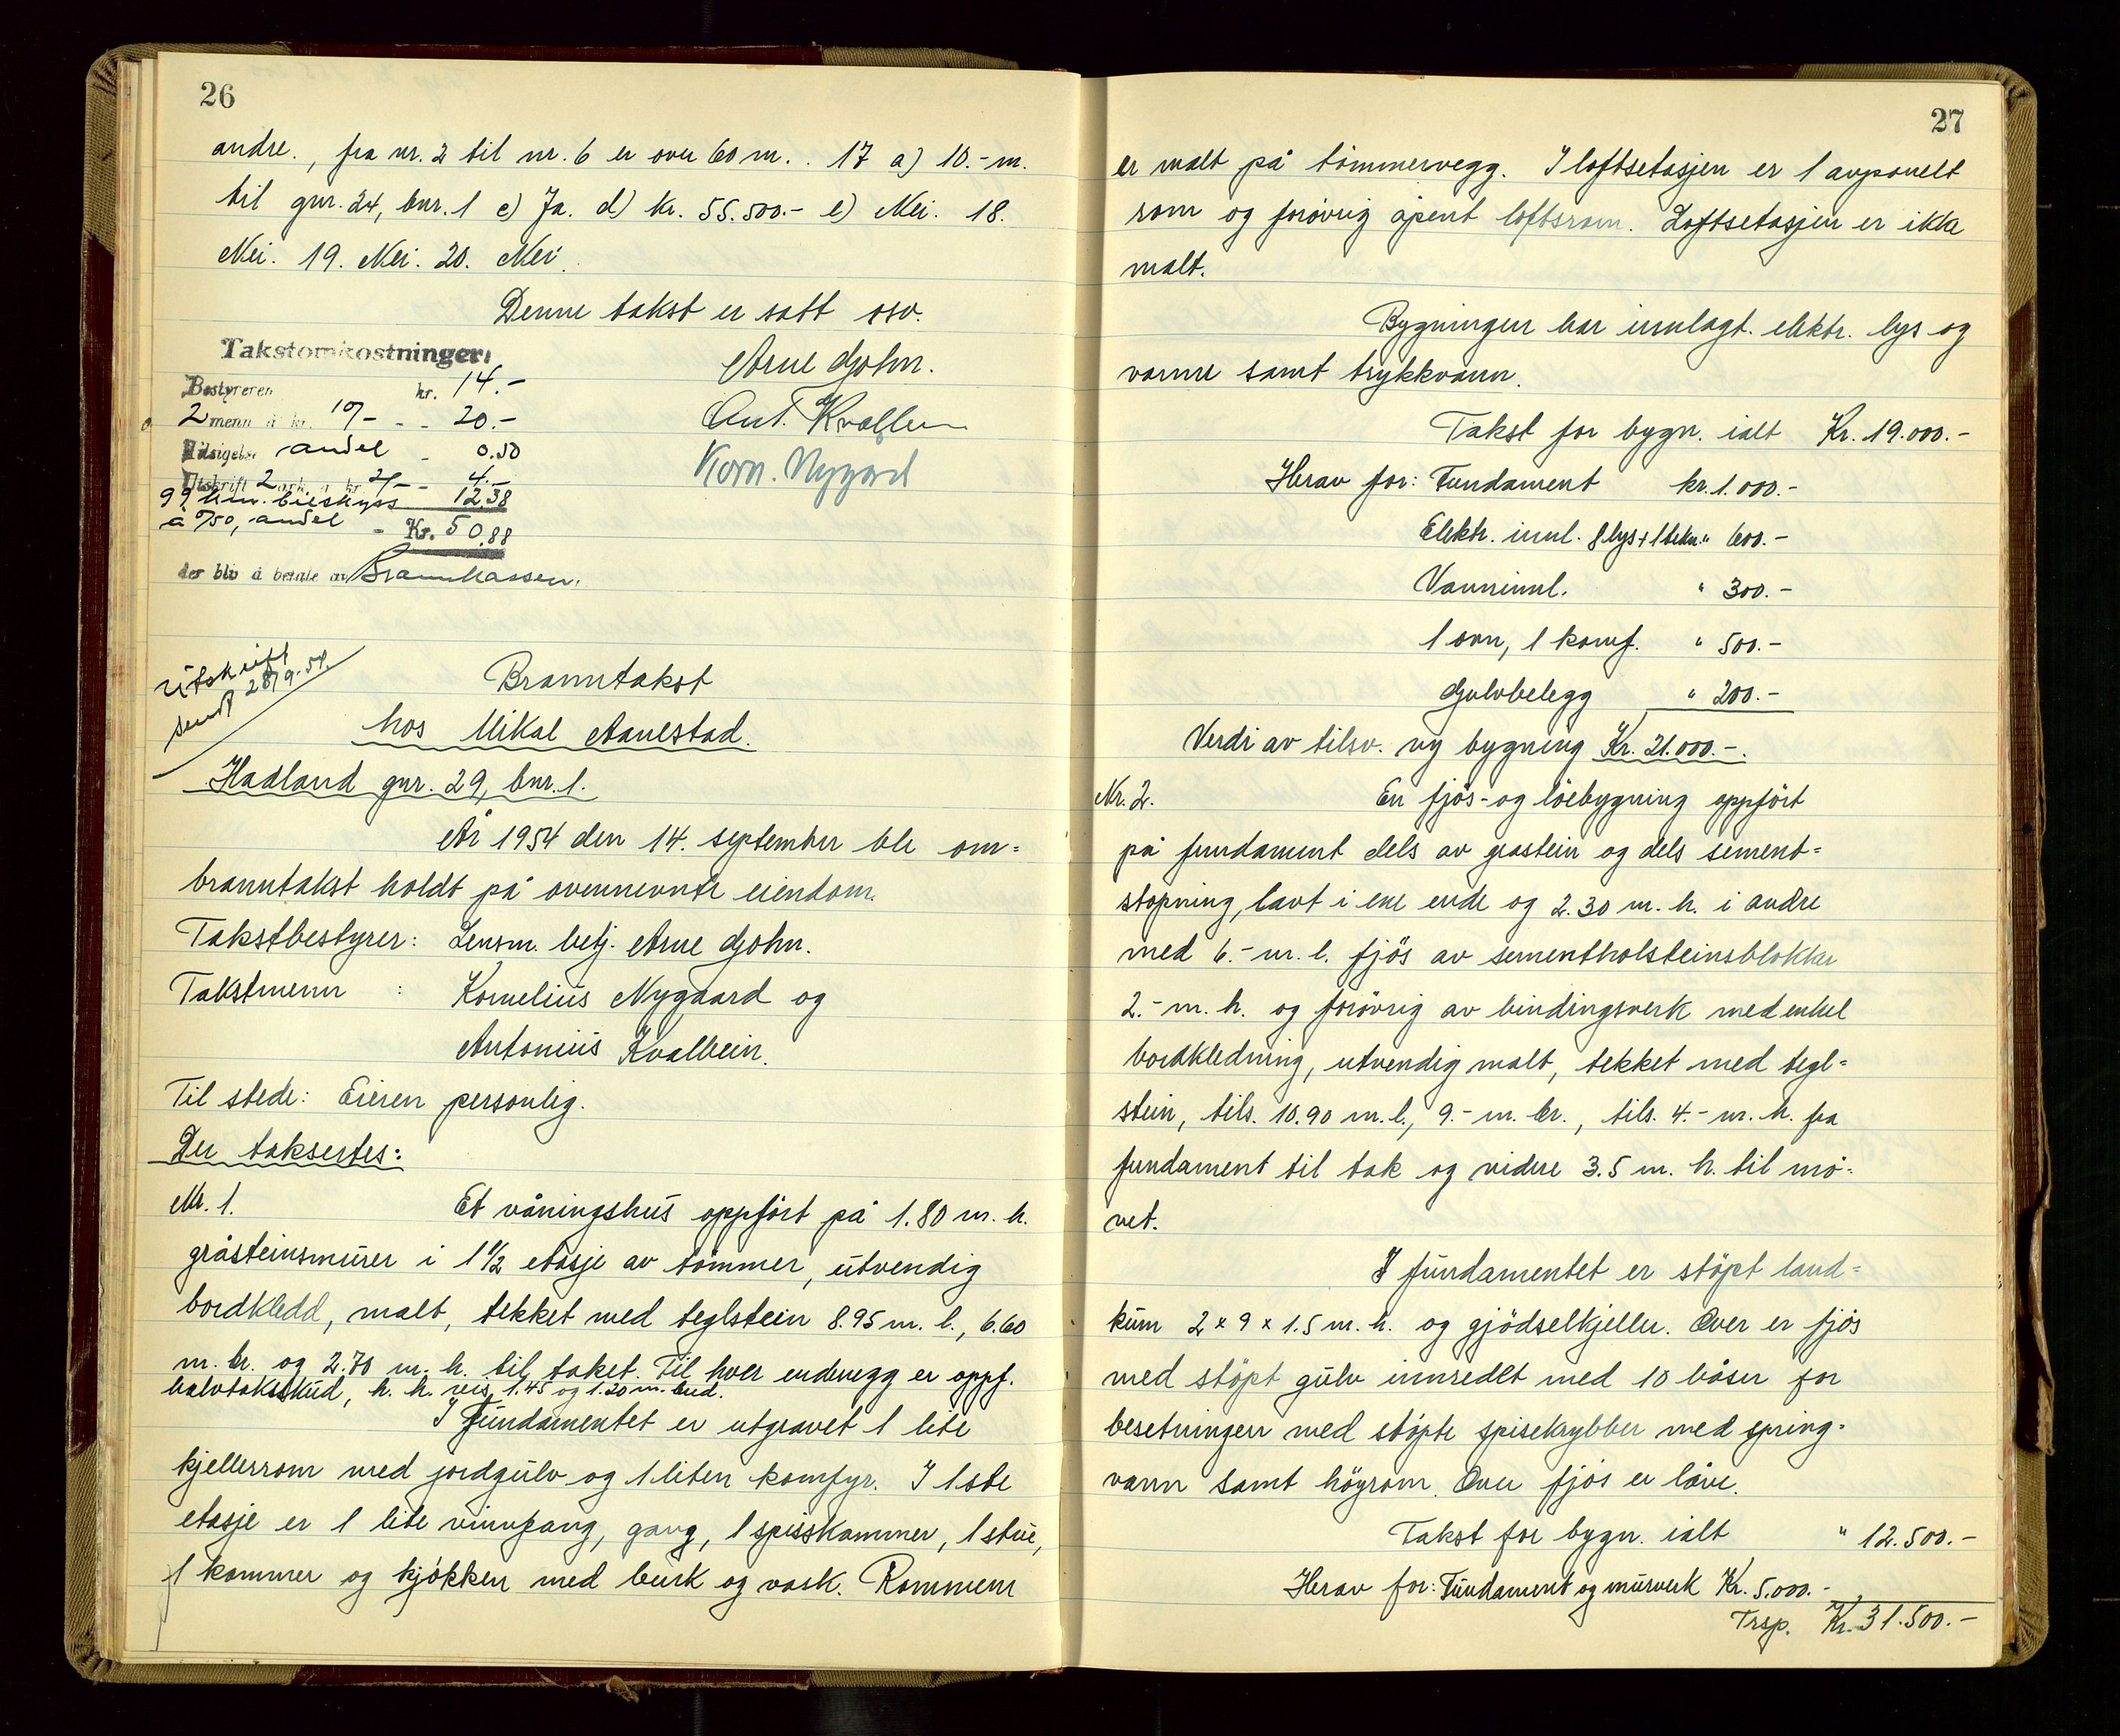 26
andre., fra nr. 2 til nr. 6 er over 60 m. . 17 a) 10.- m.
til gnr. 24, bnr. 1 c) Ja. d) Kr. 55.500.- e) Nei. 18.
Nei. 19. Nei. 20. Nei.
Denne takst er satt osv.
Takstomkostninger:
Bestyreren kr. 14.-
2 menn à kr. 10/- - - 20.-
Tilsigelse andel - 0.50
Utskrift 2 ark à kr 2/- - 4.-
99 km. bilskyss 12.38
à 0/50, andel - Kr. 50.88
der blir å betale av Brannkassen.
Arne Gjohn.
Ant. Kvalben
Korn. Nygård
Utskrift
sendt 28/9-54.
Branntakst
hos Mikal Aanestad.
Hadland gnr. 29, bnr. 1.
År 1954 den 14. september ble om-
branntakst holdt på ovennevnte eiendom.
Takstbestyrer: Lensm. betj. Arne Gjohn.
Takstmenn : Kornelius Nygaard og
Antonius Kvalbein.
Til stede: Eieren personlig.
Der taksertes:
Nr. 1. Et våningshus oppført på 1.80 m. h.
gråsteinsmurer i 1 1/2 etasje av tømmer, utvendig
bordkledd, malt, tekket med teglstein 8.95 m. l., 6.60
m. br. og 2.70 m. h. til taket. Til hver endevegg er oppf.
halvtaksskud, h. h. vis 1.45 og 1.20 m. bred.
I fundamentet er utgravet 1 lite
kjellerrom med jordgulv og 1 liten komfyr. I 1ste
etasje er 1 lite vinnfang, gang, 1 spisskammer, 1 stue,
1 kammer og kjøkken med benk og vask. Rommene
27
er malt på tømmervegg. I loftsetasjen er 1 avpanelt
rom og forøvrig åpent loftsrom. Loftsetasjen er ikke
malt.
Bygningen har innlagt elektr. lys og
varme samt trykkvann.
Takst for bygn. ialt Kr. 19.000.-
Herav for: Fundament kr. 1.000.-
Elektr. innl. 8 lys + 1 tekn. " 600.-
Vanninnl. " 300.-
1 ovn, 1 komf. " 500.-
Gulvbelegg " 200.-
Verdi av tilsv. ny bygning Kr. 21.000.-.
Nr. 2. En fjøs- og løebygning oppført
på fundament dels av gråstein og dels sement-
støpning, lavt i ene ende og 2.30 m. h. i andre
med 6.- m. l. fjøs av sementholsteinsblokker
2.- m. h. og forøvrig av bindingsverk med enkel
bordkledning, utvendig malt, tekket med tegl-
stein, tils. 10.90 m. l., 9.- m. br., tils. 4.- m. h. fra
fundament til tak og videre 3.5 m. h. til mø-
vet.
I fundamentet er støpt land-
kum 2 x 9 x 1.5 m. h. og gjødselkjeller. Over er fjøs
med støpt gulv innredet med 10 båser for
besetningen med støpte spisekrybber med spring-
vann samt høyrom. Over fjøs er låve.
Takst for bygn. ialt " 12.500.-
Herav for: Fundament og murverk Kr. 5.000.-
Trsp. Kr. 31.500.-